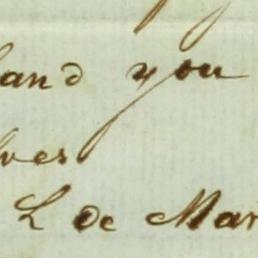 and you
lves
L De Mar